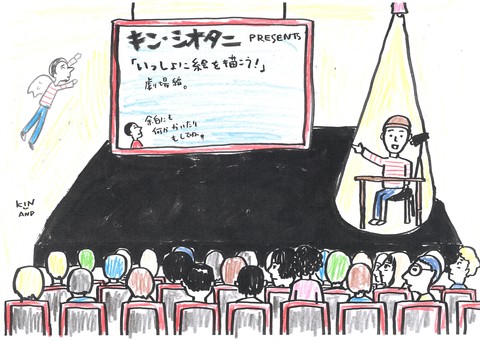 キン・シオタニ PRESENTS
「いっしょに絵を描こう！」
劇場編。
余白にも
何かかいたり
もしてね。
KIN
AND